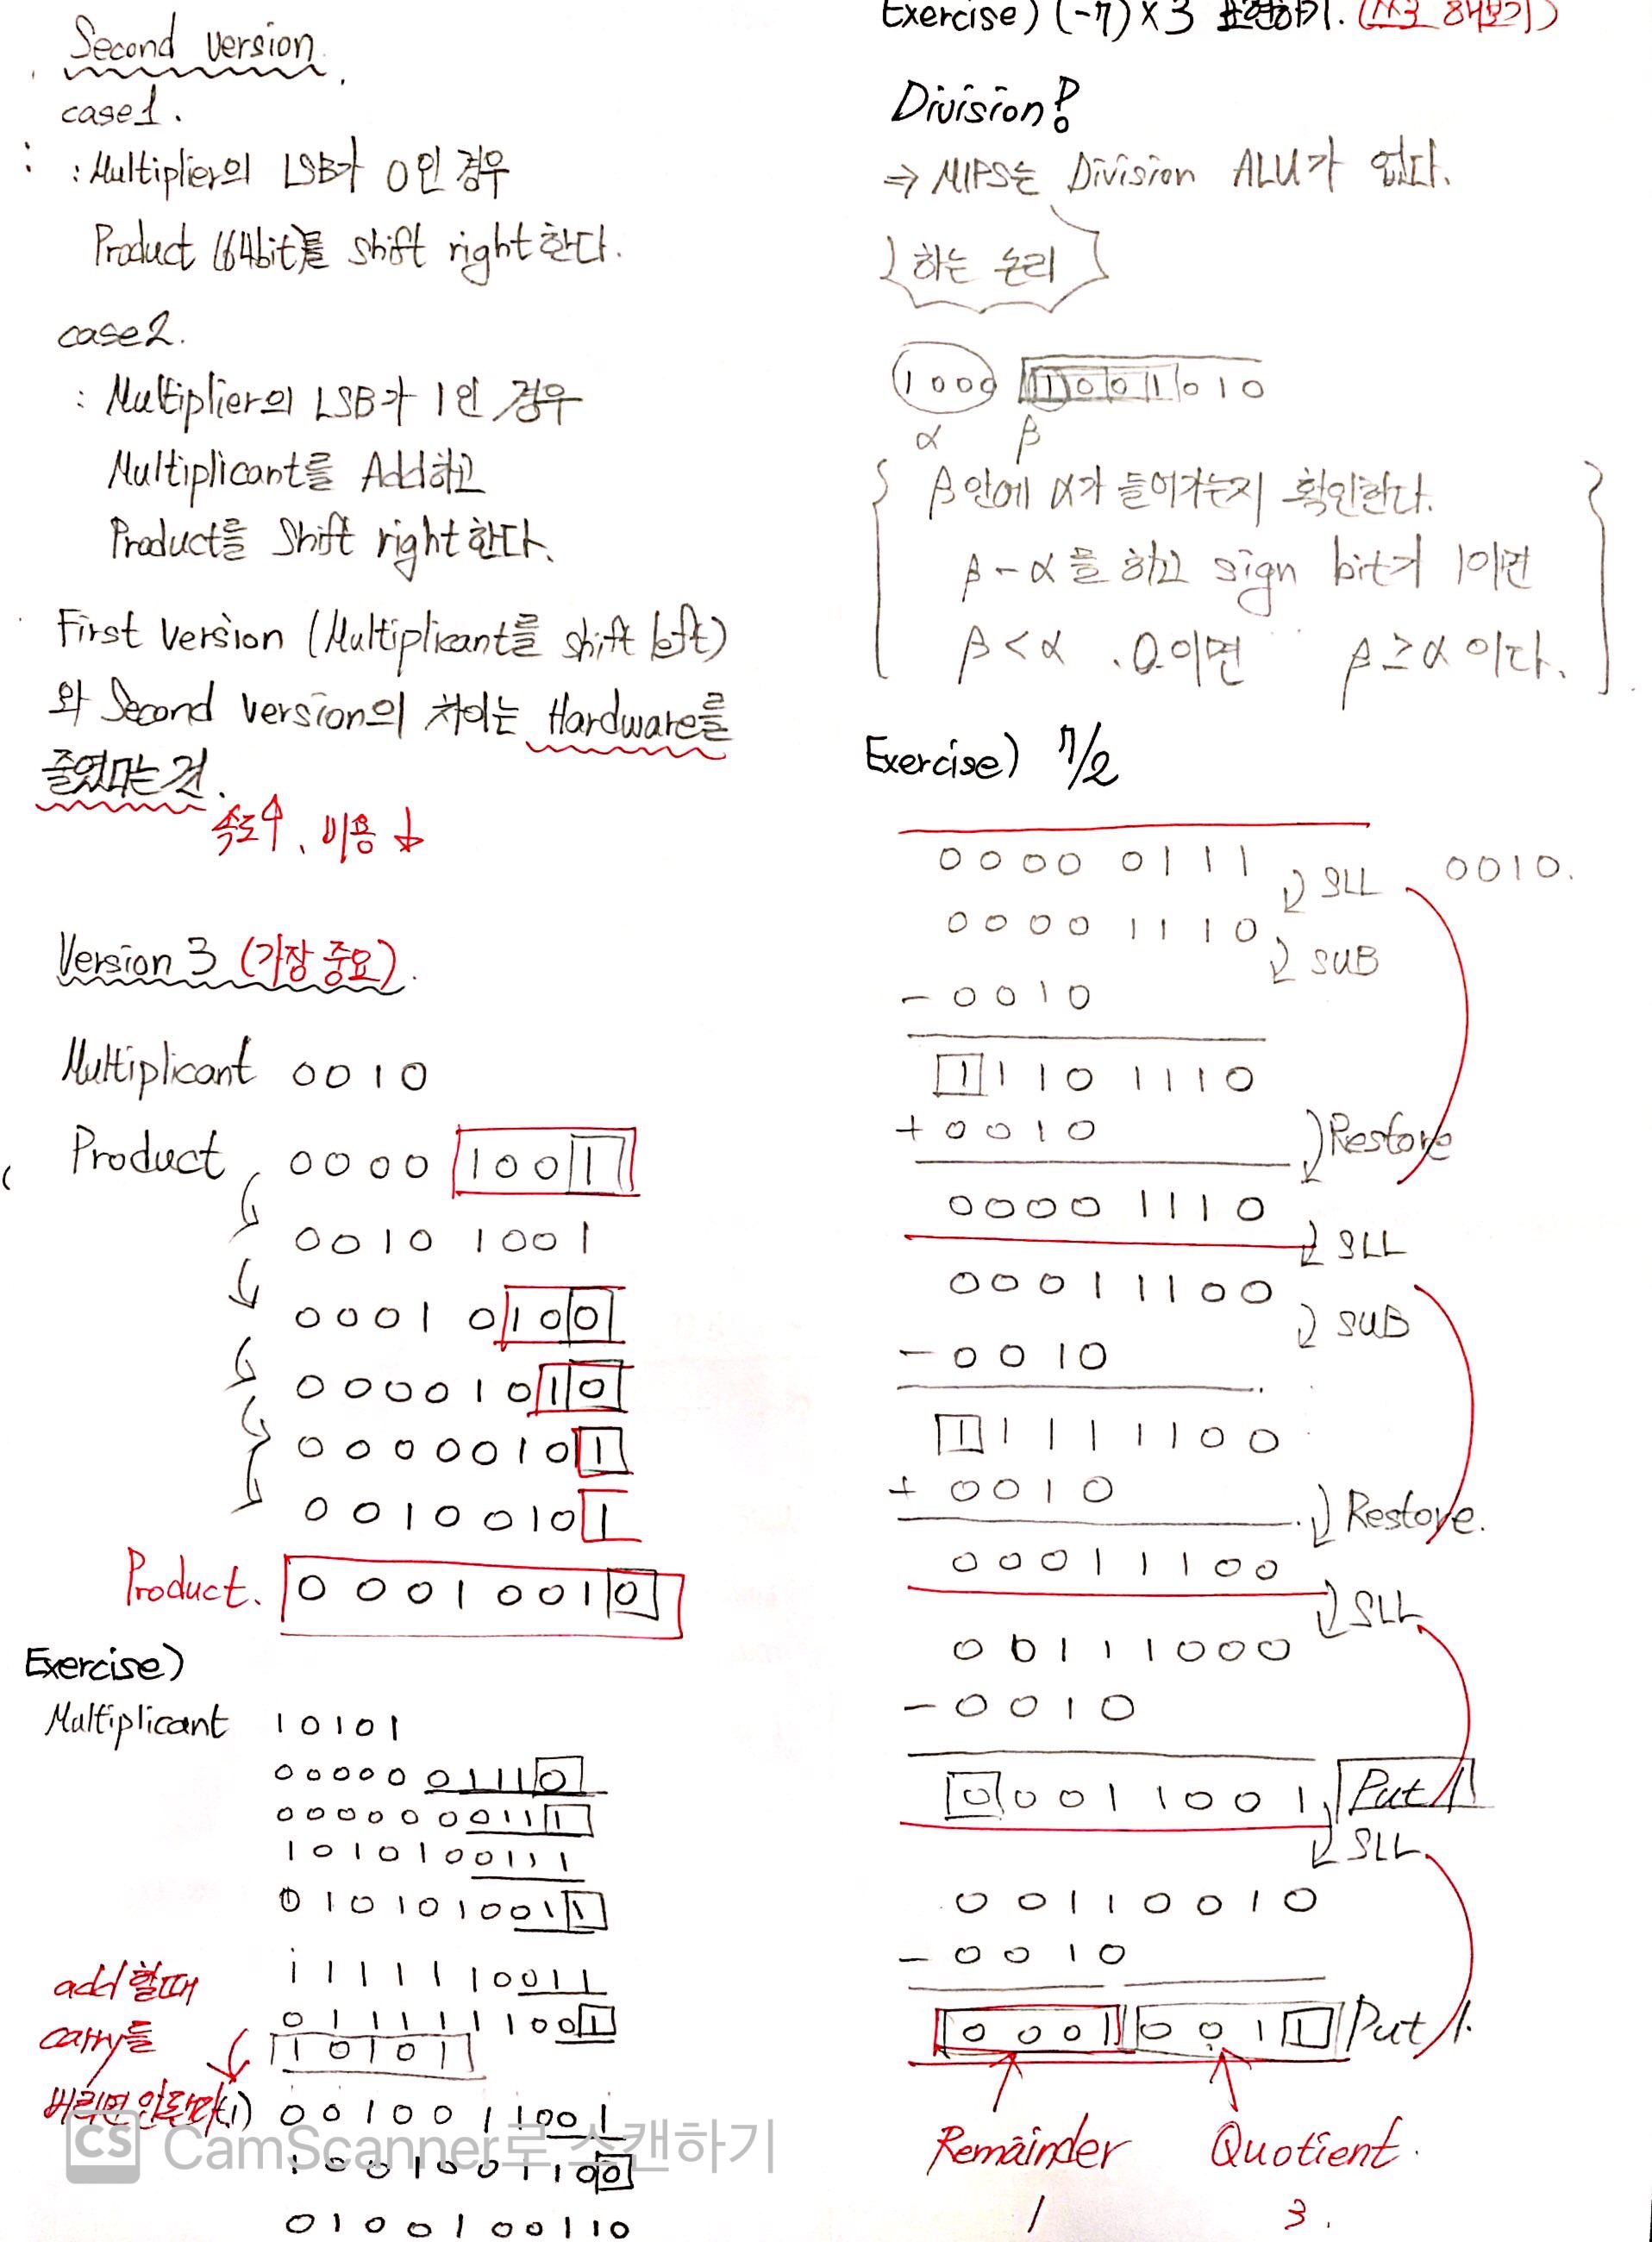 Second version.
case1.
: Multiplier의 LSB가 0인 경우
Product (64bit)를 shift right 한다.
case2.
: Multiplier의 LSB가 1인 경우
Multiplicant를 Add하고
Product를 Shift right 한다.
First version (Multiplicant를 shift left)
와 Second version의 차이는 Hardware를
줄였다는 것.
속도↑, 비용↓
Version 3 (가장 중요).
Multiplicant 0010
Product 0000 1001
0010 1001
0001 0100
00001010
00000101
0010010 1
Product. 00010010
Exercise)
Multiplicant 10101
00000 01110
0000000111
1010100111
0101010011
1111110011
0111111001
add 할때
carry를
버리면 안된다
10101
(1) 0010011001
1001001100
0100100110
Exercise) (-7)×3
Division?
⇒ MIPS는 Division ALU가 없다.
하는 논리
1000 1001010
α β
β안에 α가 들어가는지 확인한다.
β-α를 하고 sign bit가 1이면
β<α. 0이면 β≥α이다.
Exercise) 7/2
0000 0111 SLL 0010.
0000 1110 SUB
- 0010
1110 1110
+ 0010 Restore
0000 1110
SLL
00011100 SUB
- 0010
11111100
+ 0010 Restore.
00011100
SLL
00111000
- 0010
00011001 Put 1
SLL
00110010
- 0010
0001 0011 Put 1.
Remainder Quotient.
1 3.
CS CamScanner로 스캔하기